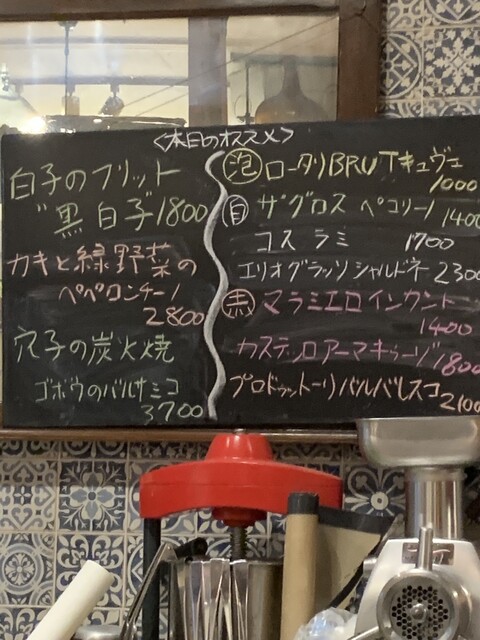 <本日のオススメ>
白子のフリット
"黒白子" 1800
カキと緑野菜の
ペペロンチーノ
2800
穴子の炭火焼
ゴボウのバルサミコ
3700
泡 ロータリBRUTキュヴェ
1000
白 ザグロス ペコリーノ 1400
コスラミ 1700
エリオグラッソシャルドネ 2300
赤 マラミエロインカント
1400
カステッロアーマキャーゾ 1800
プロドゥットーリバルバレスコ
2100